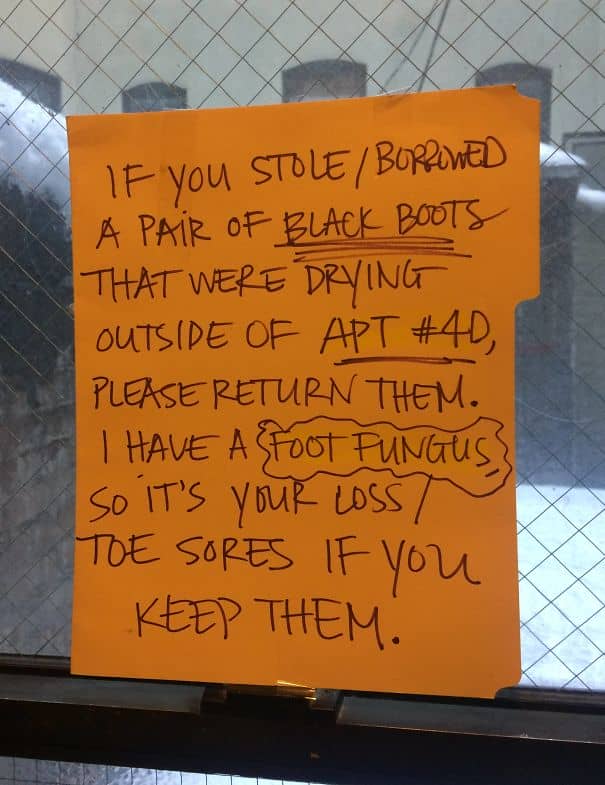 IF YOU STOLE / BORROWED
A PAIR OF BLACK BOOTS
THAT WERE DRYING
OUTSIDE OF APT #4D,
PLEASE RETURN THEM.
I HAVE A FOOT FUNGUS,
SO IT'S YOUR LOSS /
TOE SORES IF YOU
KEEP THEM.